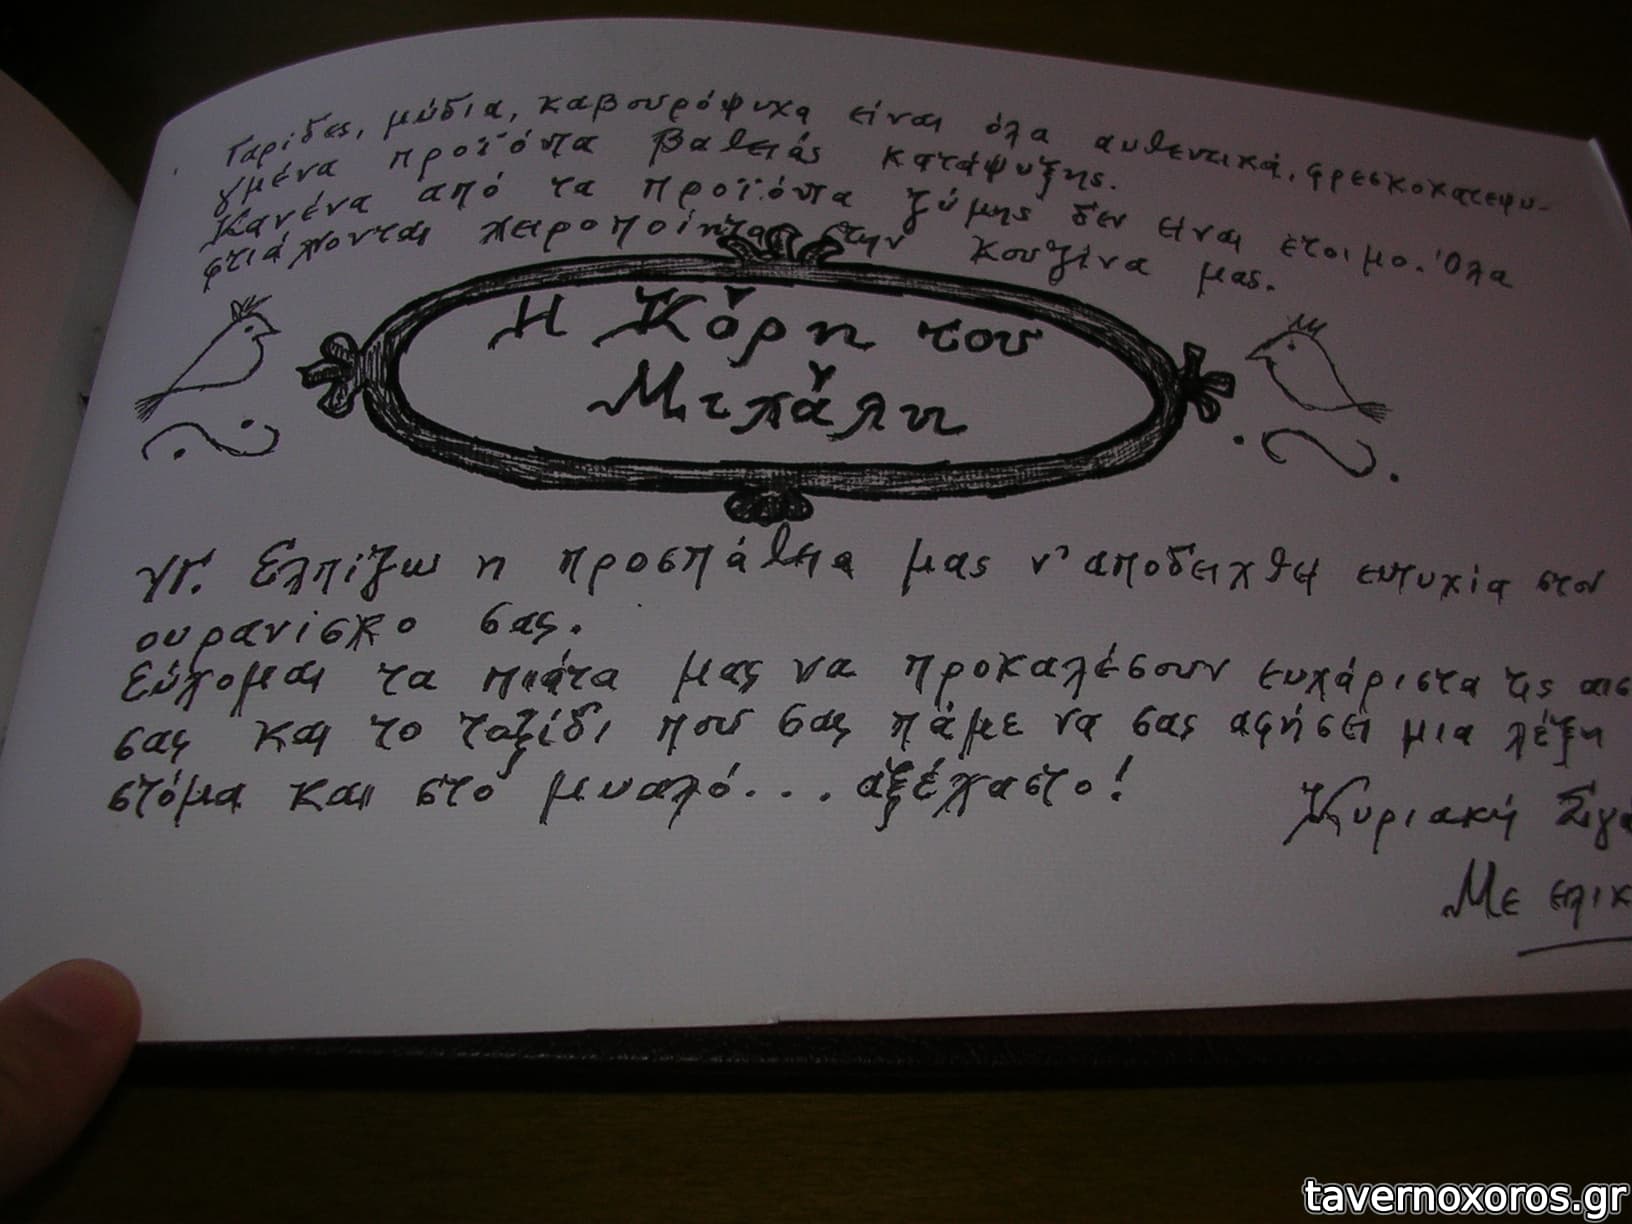 Γαρίδες, μύδια, καβουρόψυχα είναι όλα αυθεντικά, φρεσκοκατεψυ-
γμένα προϊόντα βαθειάς κατάψυξης.
Κανένα από τα προϊόντα ζύμης δεν είναι έτοιμο. Όλα
φτιάχνονται χειροποίητα στην κουζίνα μας.
Η Κόρη του
Μπάλη
ΥΓ. Ελπίζω η προσπάθεια μας ν' αποδειχθεί ευτυχία στον
ουρανίσκο σας.
Εύχομαι τα πιάτα μας να προκαλέσουν ευχάριστα τις αισ
σας και το ταξίδι που σας πάμε να σας αφήσει μια λέξη
στόμα και στο μυαλό... αξέχαστο!
Κυριακή Σιγά
Με ελικ
tavernoxoros.gr